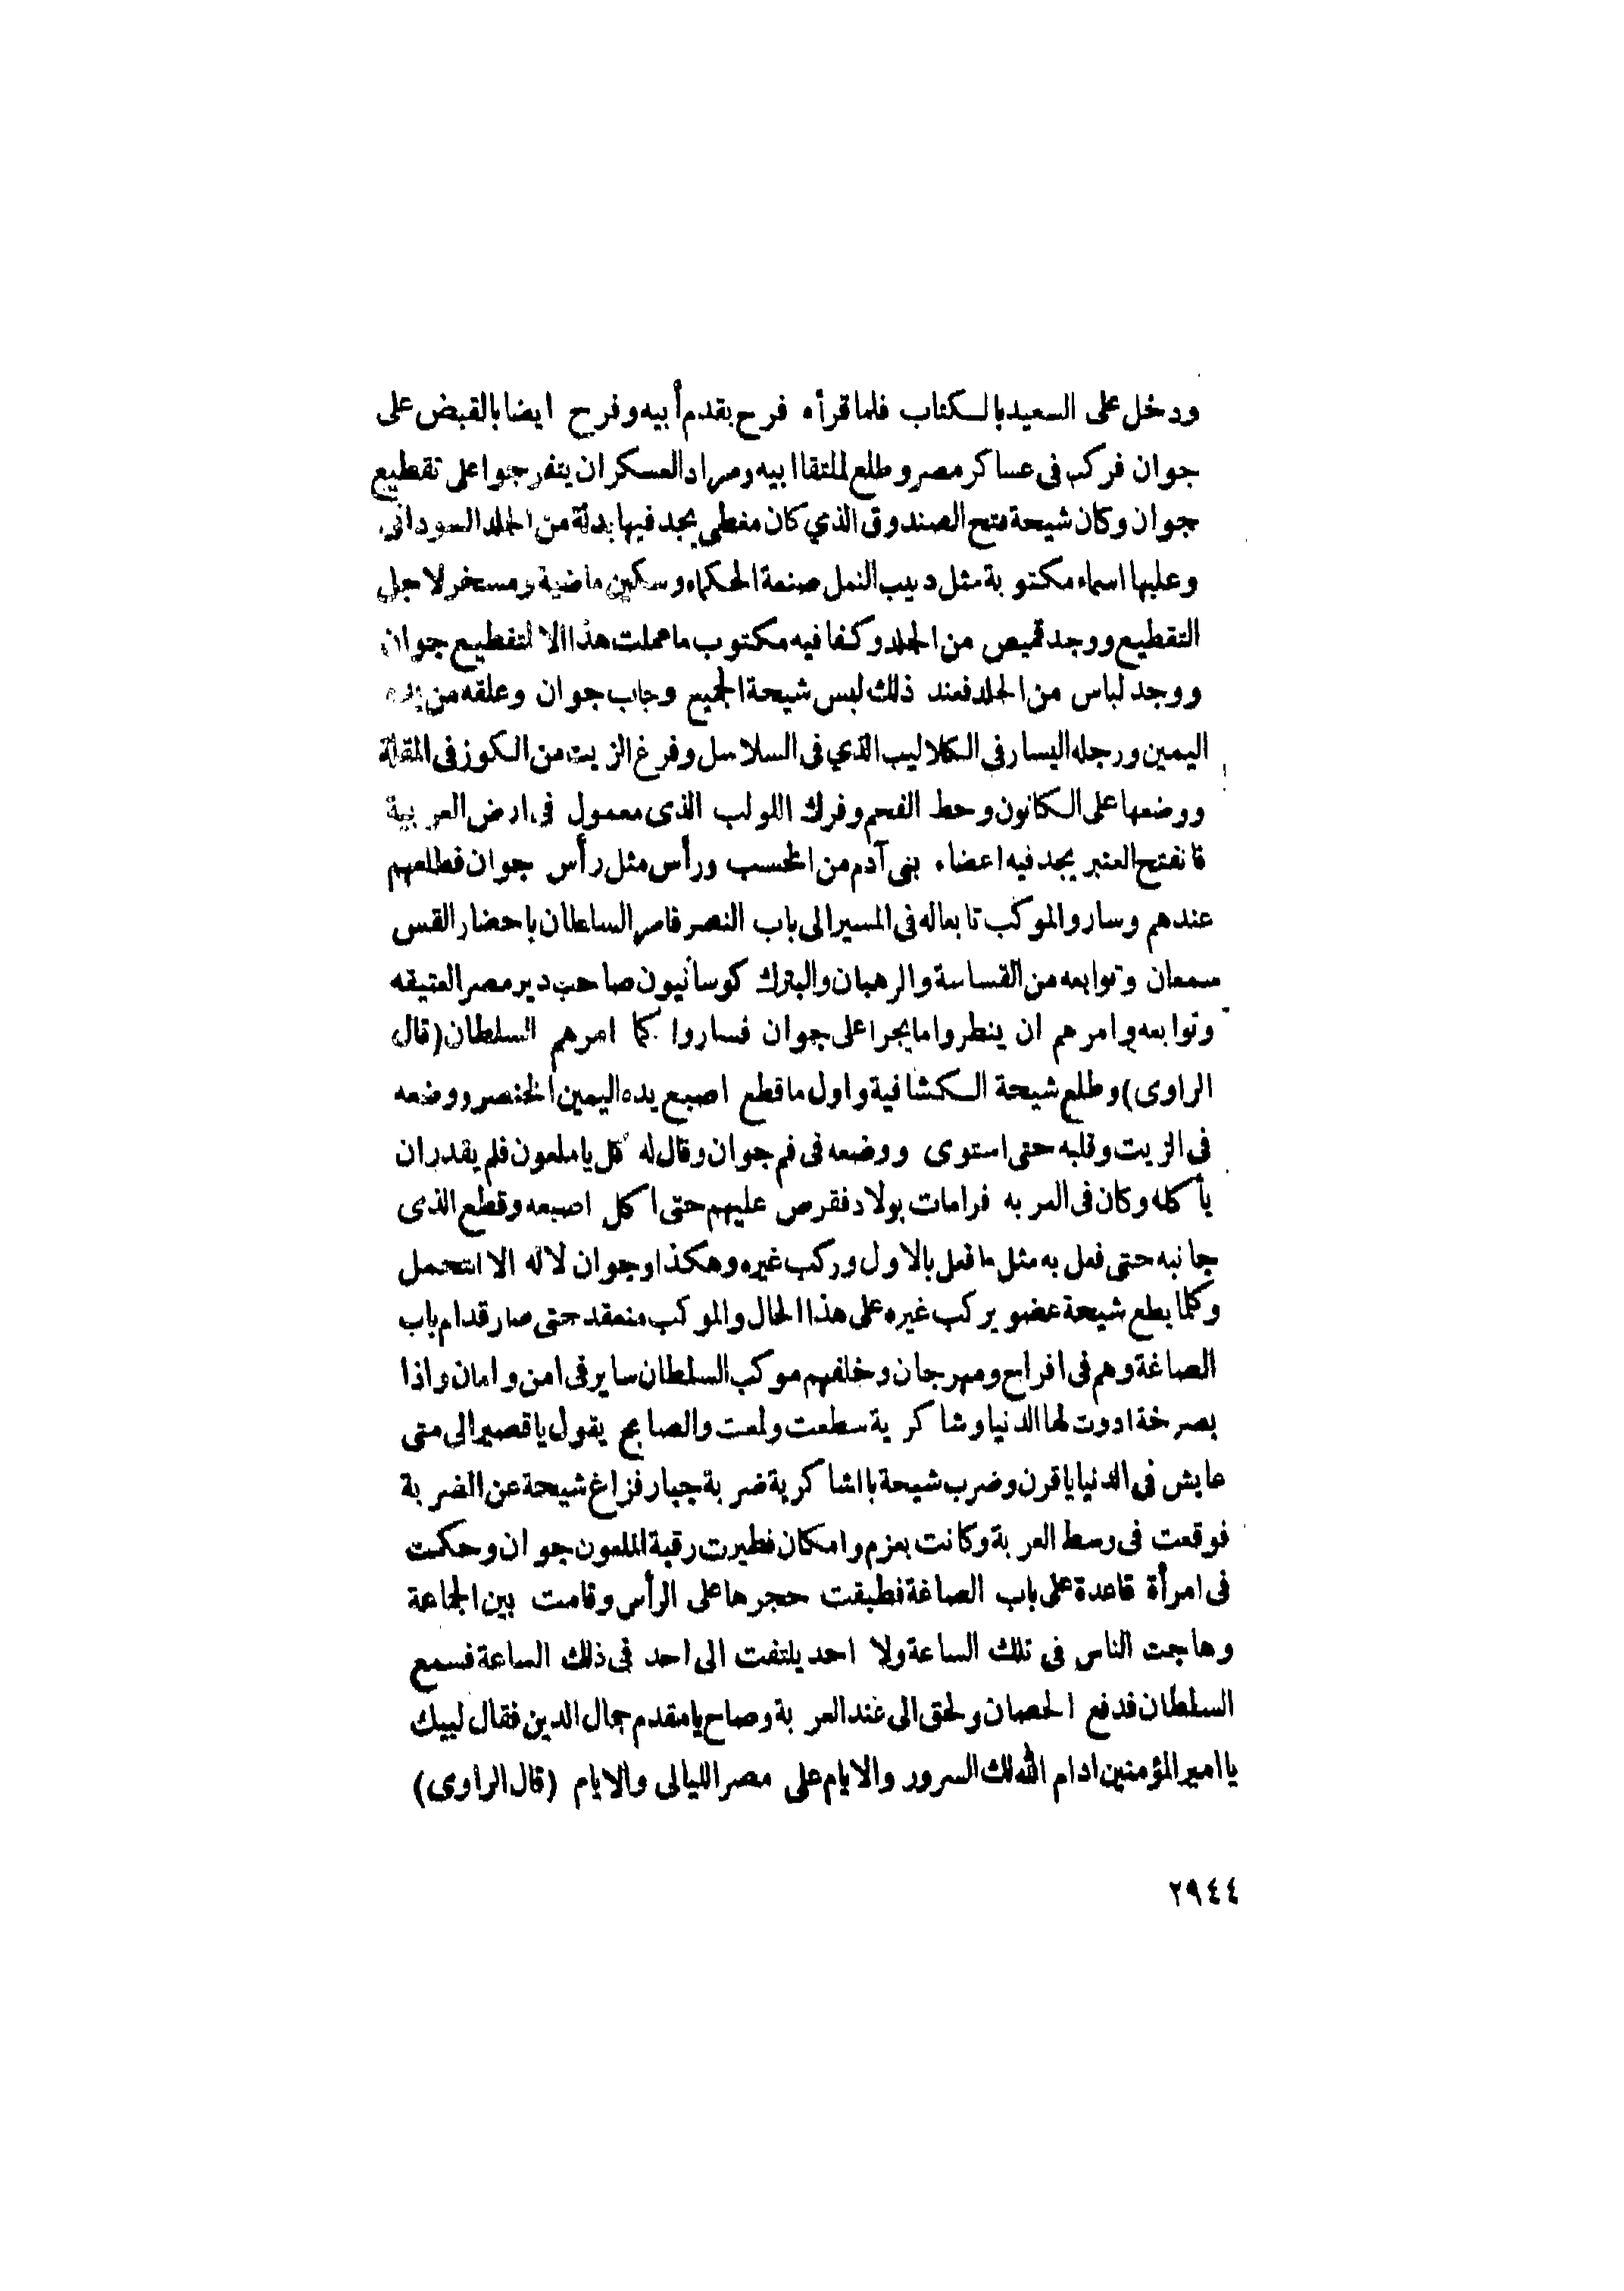 ودخل على السعيد بالكتاب فلما قرأه فرح بقدم أبيه وفرح ايضا بالقبض على
جوان فركب فى عساكر مصر وطلع لملتقا ابيه ومراد العسكر ان يتفرجوا على تقطيع
جوان وكان شيحة فتح الصندوق الذي كان مغطى يجد فيها بدلة من الجلد السودانى
وعليها اسماء مكتوبة مثل دبيب النمل صنعة الحكماء وسكين ماضية ومسخر لاجل
التقطيع ووجد قميص من الجلد وكفا فيه مكتوب ما عملت هذا الا لتقطيع جوان
ووجد لباس من الجلد فعند ذلك لبس شيحة الجميع وجاب جوان وعلقه من يده
اليمين ورجله اليسار فى الكلاليب الذي فى السلاسل وفرغ الزيت من الكوز فى المقلة
ووضعها على الكانون وحط الفحم وفرك اللولب الذى معمول فى ارض العربية
فانفتح العنبر يجد فيه اعضاء بنى آدم من الخسب ورأس مثل رأس جوان فطلعهم
عندهم وسار والموكب تابعاله فى المسير الى باب النصر فامر السلطان باحضار القس
سمعان وتوابعه من القساسة والرهبان والبترك كوسانيون صاحب دير مصر العتيقه
وتوابعه وامرهم ان ينطروا ما يجرا على جوان فساروا كما امرهم السلطان (قال
الراوى) وطلع شيحة الكشافية واول ما قطع اصبع يده اليمين الخنصر ووضعه
فى الزيت وقلبه حتى استوى ووضعه فى فم جوان وقال له كل يا ملعون فلم يقدر ان
يأكله وكان فى العربه فرامات بولاد فقرص عليهم حتى اكل اصبعه وقطع الذى
جانبه حتى فعل به مثل ما فعل بالاول وركب غيره وهكذا وجوان لاله الا التحمل
وكلما يطع شيحة عضو يركب غيره على هذا الحال والموكب منعقد حتى صار قدام باب
الصاغة وهم فى افراح ومهرجان وخلفهم موكب السلطان ساير فى امن وامان واذا
بصرخة ادوت لها الدنيا وشاكرية سطعت ولمعت والصايح يقول يا قصير الى متى
عايش فى الدنيا يا قرن وضرب شيحة بالشاكرية ضربة جبار فزاغ شيحة عن الضربة
فوقعت فى وسط العربة وكانت بعزم وامكان فطيرت رقبة الملعون جوان وحكمت
فى امرأة قاعدة على باب الصاغة فطبقت حجرها على الرأس وقامت بين الجماعة
وهاجت الناس فى تلك الساعة ولا احد يلتفت الى احد فى ذلك الساعة فسمع
السلطان فدفع الحصان ولحق الى عند العربة وصاح يا مقدم جمال الدين فقال لبيك
يا امير المؤمنين ادام الله لك السرور والايام على مصر الليالى والايام (قال الراوى)
٢٩٤٤